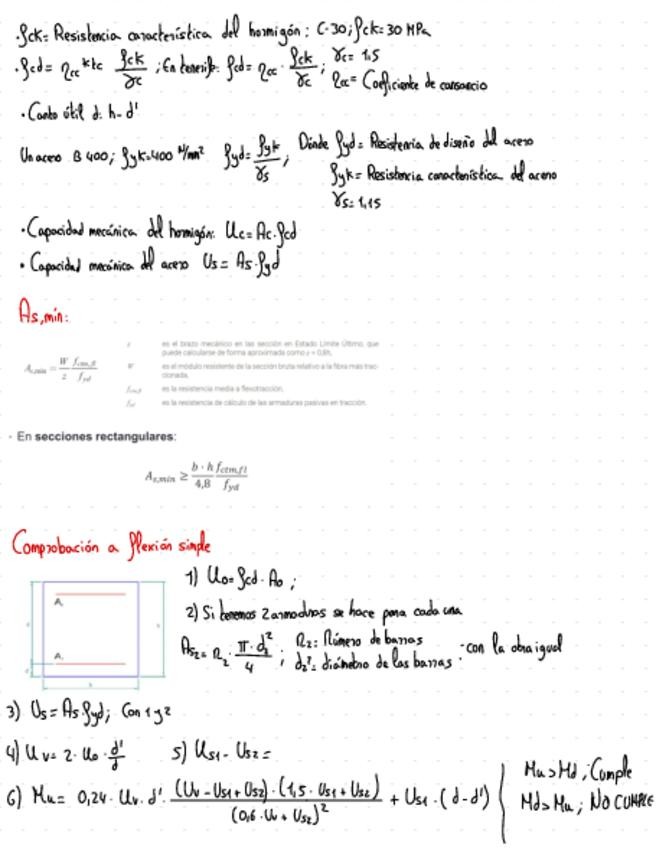 ·fck= Resistencia característica del hormigón ; C-30 ; fck= 30 MPa
·fcd= ηcc * ktc fck/γc ; En tenerife: fcd= ηcc · fck/γc ; γc= 1,5
ηcc= Coeficiente de cansancio
· Canto útil d: h-d'
Un acero B 400; fyk=400 N/mm² fyd= fyk/γs ; Dónde fyd= Resistencia de diseño del acero
fyk= Resistencia característica del acero
γs= 1,15
· Capacidad mecánica del hormigón: Uc= Ac·fcd
· Capacidad mecánica del acero Us= As·fyd
As,min:
A_{s,min} = W/z f_{ctm,fl}/f_{yd}
z es el brazo mecánico en las sección en Estado Límite Último, que
puede calcularse de forma aproximada como z = 0,8h,
W es el módulo resistente de la sección bruta relativo a la fibra más trac-
cionada,
f_{ctm,fl} es la resistencia media a flexotracción,
f_{yd} es la resistencia de cálculo de las armaduras pasivas en tracción.
· En secciones rectangulares:
A_{s,min} ≥ b·h/4,8 f_{ctm,fl}/f_{yd}
Comprobación a flexión simple
1) Uo= fcd · Ao ;
2) Si tenemos 2 armaduras se hace para cada una
As2= n2 · π·d2²/4 ; n2: Número de barras
d2²: diámetro de las barras · con la otra igual
3) Us= As·fyd; Con 1 y 2
4) Uv= 2· Uo · d'/d 5) Us1 - Us2 =
6) Mu= 0,24· Uv· d'· (Uv - Us1 + Us2)·(1,5· Us1 + Us2)/(0,6·Uv + Us2)² + Us1·(d-d')
Mu>Md ; Cumple
Md>Mu ; NO CUMPLE